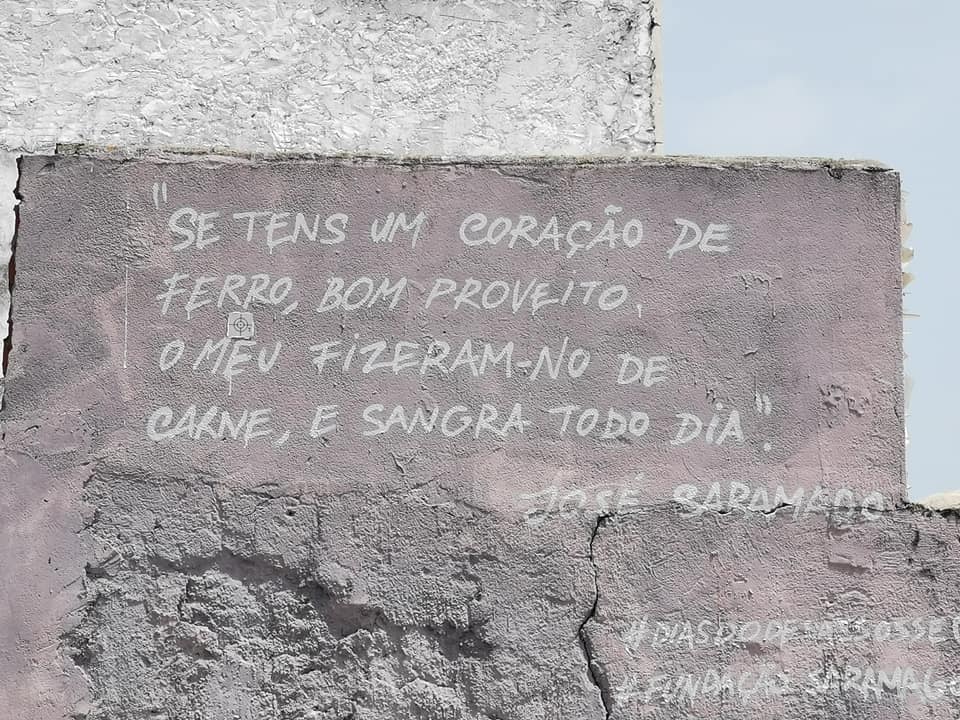 "SE TENS UM CORAÇÃO DE
FERRO, BOM PROVEITO.
O MEU FIZERAM-NO DE
CARNE, E SANGRA TODO DIA".
JOSÉ SARAMAGO
#FUNDAÇÃO SARAMAG